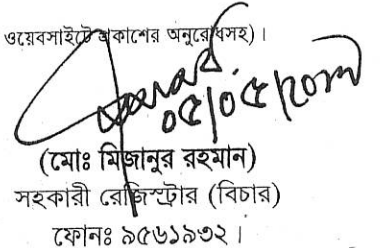 ওয়েবসাইটে প্রকাশের অনুরোধসহ)।
০৫/০৫/২০১৮
(মোঃ মিজানুর রহমান)
সহকারী রেজিস্ট্রার (বিচার)
ফোনঃ ৯৫৬১৯৩২।